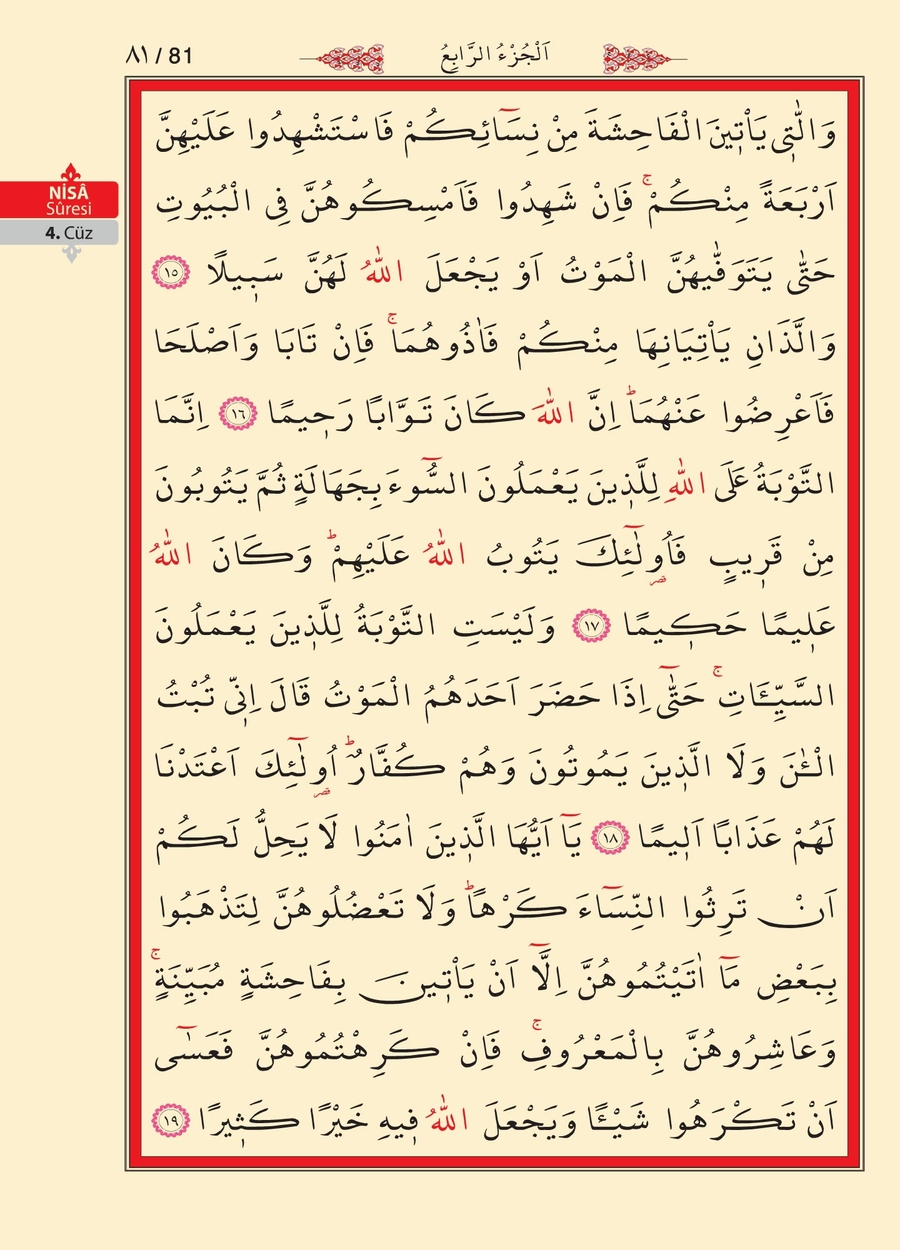 ٨١ / 81
اَلْجُزْءُ الرَّابِعُ
NİSÂ
Sûresi
4. Cüz
وَالّٰت۪ى يَأْت۪ينَ الْفَاحِشَةَ مِنْ نِسَٓائِكُمْ فَاسْتَشْهِدُوا عَلَيْهِنَّ
اَرْبَعَةً مِنْكُمْۚ فَاِنْ شَهِدُوا فَاَمْسِكُوهُنَّ فِى الْبُيُوتِ
حَتّٰى يَتَوَفّٰيهُنَّ الْمَوْتُ اَوْ يَجْعَلَ اللّٰهُ لَهُنَّ سَب۪يلًا ﴿١٥﴾
وَالَّذَانِ يَأْتِيَانِهَا مِنْكُمْ فَاٰذُوهُمَاۚ فَاِنْ تَابَا وَاَصْلَحَا
فَاَعْرِضُوا عَنْهُمَاۜ اِنَّ اللّٰهَ كَانَ تَوَّابًا رَح۪يمًا ﴿١٦﴾ اِنَّمَا
التَّوْبَةُ عَلَى اللّٰهِ لِلَّذ۪ينَ يَعْمَلُونَ السُّٓوءَ بِجَهَالَةٍ ثُمَّ يَتُوبُونَ
مِنْ قَر۪يبٍ فَاُو۬لٰٓئِكَ يَتُوبُ اللّٰهُ عَلَيْهِمْۜ وَكَانَ اللّٰهُ
عَل۪يمًا حَك۪يمًا ﴿١٧﴾ وَلَيْسَتِ التَّوْبَةُ لِلَّذ۪ينَ يَعْمَلُونَ
السَّيِّـَٔاتِۚ حَتّٰٓى اِذَا حَضَرَ اَحَدَهُمُ الْمَوْتُ قَالَ اِنّ۪ى تُبْتُ
الْـٰٔنَ وَلَا الَّذ۪ينَ يَمُوتُونَ وَهُمْ كُفَّارٌۜ اُو۬لٰٓئِكَ اَعْتَدْنَا
لَهُمْ عَذَابًا اَل۪يمًا ﴿١٨﴾ يَٓا اَيُّهَا الَّذ۪ينَ اٰمَنُوا لَا يَحِلُّ لَكُمْ
اَنْ تَرِثُوا النِّسَٓاءَ كَرْهًاۜ وَلَا تَعْضُلُوهُنَّ لِتَذْهَبُوا
بِبَعْضِ مَٓا اٰتَيْتُمُوهُنَّ اِلَّٓا اَنْ يَأْت۪ينَ بِفَاحِشَةٍ مُبَيِّنَةٍۚ
وَعَاشِرُوهُنَّ بِالْمَعْرُوفِۚ فَاِنْ كَرِهْتُمُوهُنَّ فَعَسٰٓى
اَنْ تَكْرَهُوا شَيْـًٔا وَيَجْعَلَ اللّٰهُ ف۪يهِ خَيْرًا كَث۪يرًا ﴿١٩﴾